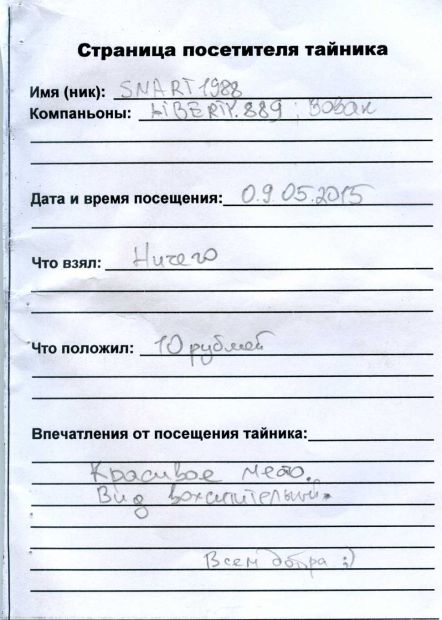 Страница посетителя тайника
Имя (ник): SNART1988
Компаньоны: LIBERTY.889 ; Вован
Дата и время посещения: 0.9.05.2015
Что взял: Ничего
Что положил: 10 рублей
Впечатления от посещения тайника:
Красивое место.
Вид восхитительный.
Всем добра :)